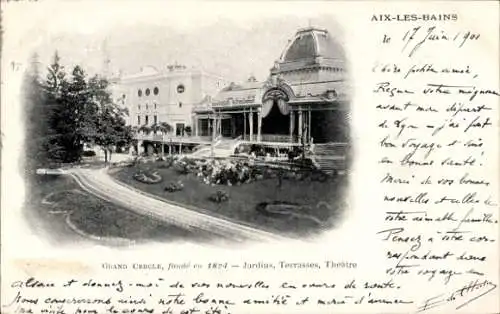 AIX-LES-BAINS
le 17 Juin 1901
Chère petite amie,
Reçue votre mignonne
avant mon départ
de Lyon j'ai fait
bon voyage &
en bonne santé.
Merci de vos bonnes
nouvelles et celles de
votre aimable famille.
Pensez à votre cher
et répondant
votre voyage en
GRAND CERCLE, fondé en 1824 – Jardins, Terrasses, Théâtre
Alsace et donnez-moi de vos nouvelles en cours de route.
Nous conserverons ainsi notre bonne amitié et merci d'avance
ma visite pour le cours de cet été.